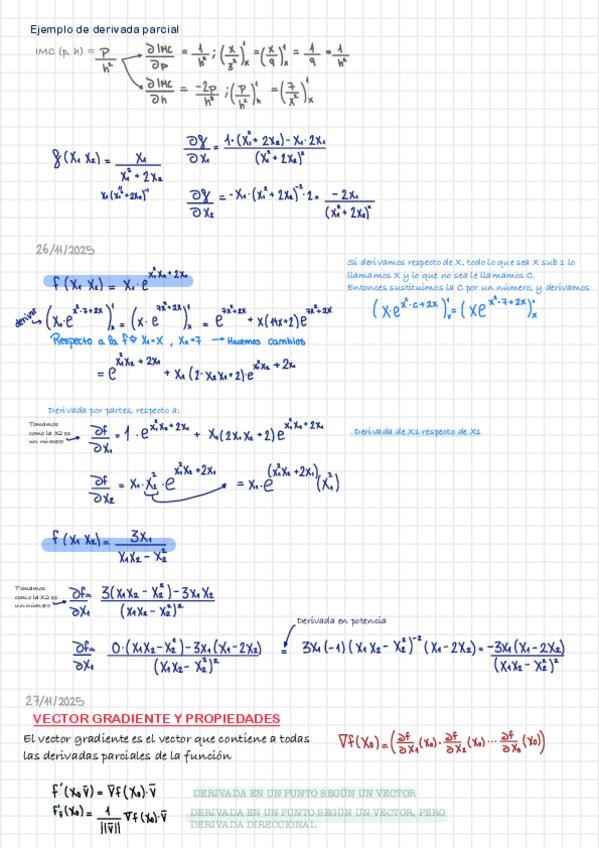 Ejemplo de derivada parcial
IMC (p, h) = p/h² ∂IMC/∂p = 1/h² ; (x/3²)'ₓ = (x/9)'ₓ = 1/9 = 1/h²
∂IMC/∂h = -2p/h³ ; (p/h²)'ₕ = (7/x²)'ₓ
g(x₁ x₂) = x₁/(x₁² + 2x₂) ∂g/∂x₁ = (1·(x₁² + 2x₂) - x₁·2x₁)/(x₁² + 2x₂)²
x₁(x₁²+2x₂)⁻¹ ∂g/∂x₂ = -x₁·(x₁² + 2x₂)⁻²·2 = -2x₁/(x₁² + 2x₂)²
26/11/2025
f(x₁ x₂) = x₁·e^(x₁²x₂ + 2x₁)
Si derivamos respecto de X, todo lo que sea X sub 1 lo
llamamos X y lo que no sea le llamamos C.
Entonces sustituimos la C por un número, y derivamos
(x·e^(x²·c+2x))'ₓ = (xe^(x²·7+2x))'ₓ
derivar (x·e^(x²·7+2x))'ₓ = (x·e^(7x²+2x))'ₓ = e^(7x²+2x) + x(14x+2)e^(7x²+2x)
Respecto a la f → x₁=x , x₂=7 → Hacemos cambios
= e^(x₁²x₂ + 2x₁) + x₁(2·x₂x₁+2)·e^(x₁²x₂ + 2x₁)
Derivada por partes, respecto a:
Tomamos
como la X2 es
un número
∂f/∂x₁ = 1·e^(x₁²x₂+2x₁) + x₁(2x₁x₂+2)e^(x₁²x₂+2x₁)
Derivada de X1 respecto de X1
∂f/∂x₂ = x₁·x₁²·e^(x₁²x₂+2x₁) = x₁·e^(x₁²x₂+2x₁)(x₁²)
f(x₁ x₂) = 3x₁/(x₁x₂ - x₂²)
Tomamos
como la X2 es
un número
∂f/∂x₁ = (3(x₁x₂ - x₂²) - 3x₁x₂)/(x₁x₂ - x₂²)²
Derivada en potencia
∂f/∂x₁ = (0·(x₁x₂ - x₂²) - 3x₁(x₁ - 2x₂))/(x₁x₂ - x₂²)² = 3x₁(-1)(x₁x₂ - x₂²)⁻²(x₁ - 2x₂) = -3x₁(x₁ - 2x₂)/(x₁x₂ - x₂²)²
27/11/2025
VECTOR GRADIENTE Y PROPIEDADES
El vector gradiente es el vector que contiene a todas
las derivadas parciales de la función
∇f(x₀) = (∂f/∂x₁(x₀)·∂f/∂x₂(x₀)···∂f/∂xₙ(x₀))
f'(x₀ v̄) = ∇f(x₀)·v̄ DERIVADA EN UN PUNTO SEGÚN UN VECTOR
f'ᵥ̄(x₀) = 1/||v̄|| ∇f(x₀)·v̄ DERIVADA EN UN PUNTO SEGÚN UN VECTOR, PERO
DERIVADA DIRECCIONAL